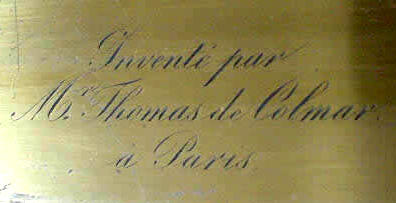 Inventé par
Mr. Thomas de Colmar.
à Paris